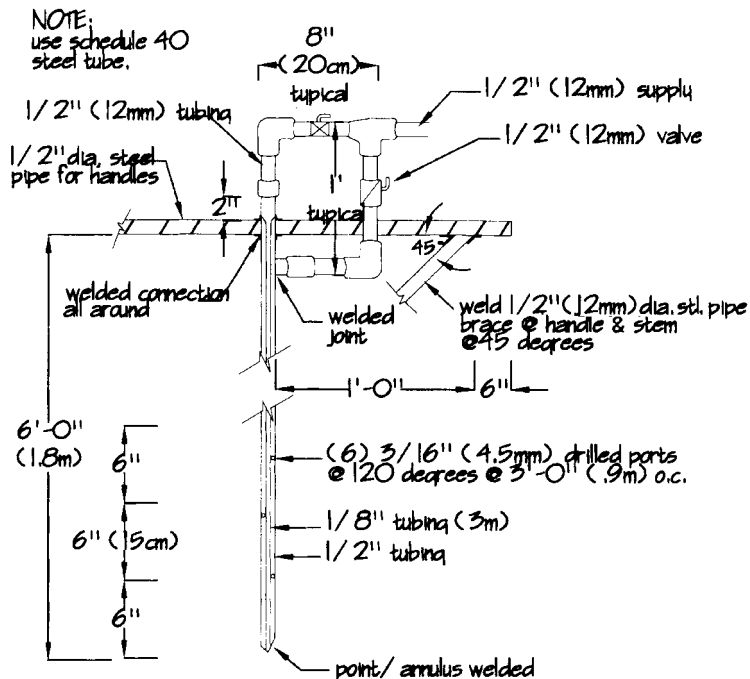 NOTE:
use schedule 40
steel tube.
8"
(20cm)
typical
1/2" (12mm) tubing
1/2" (12mm) supply
1/2" (12mm) valve
1/2" dia. steel
pipe for handles
2"
1"
typical
45°
welded connection
all around
welded
joint
weld 1/2" (12mm) dia. stl. pipe
brace @ handle & stem
@45 degrees
1'-0"
6"
6'-0"
(1.8m)
6"
(6) 3/16" (4.5mm) drilled ports
@ 120 degrees @ 3'-0" (.9m) o.c.
6" (15cm)
1/8" tubing (3m)
1/2" tubing
6"
point/ annulus welded